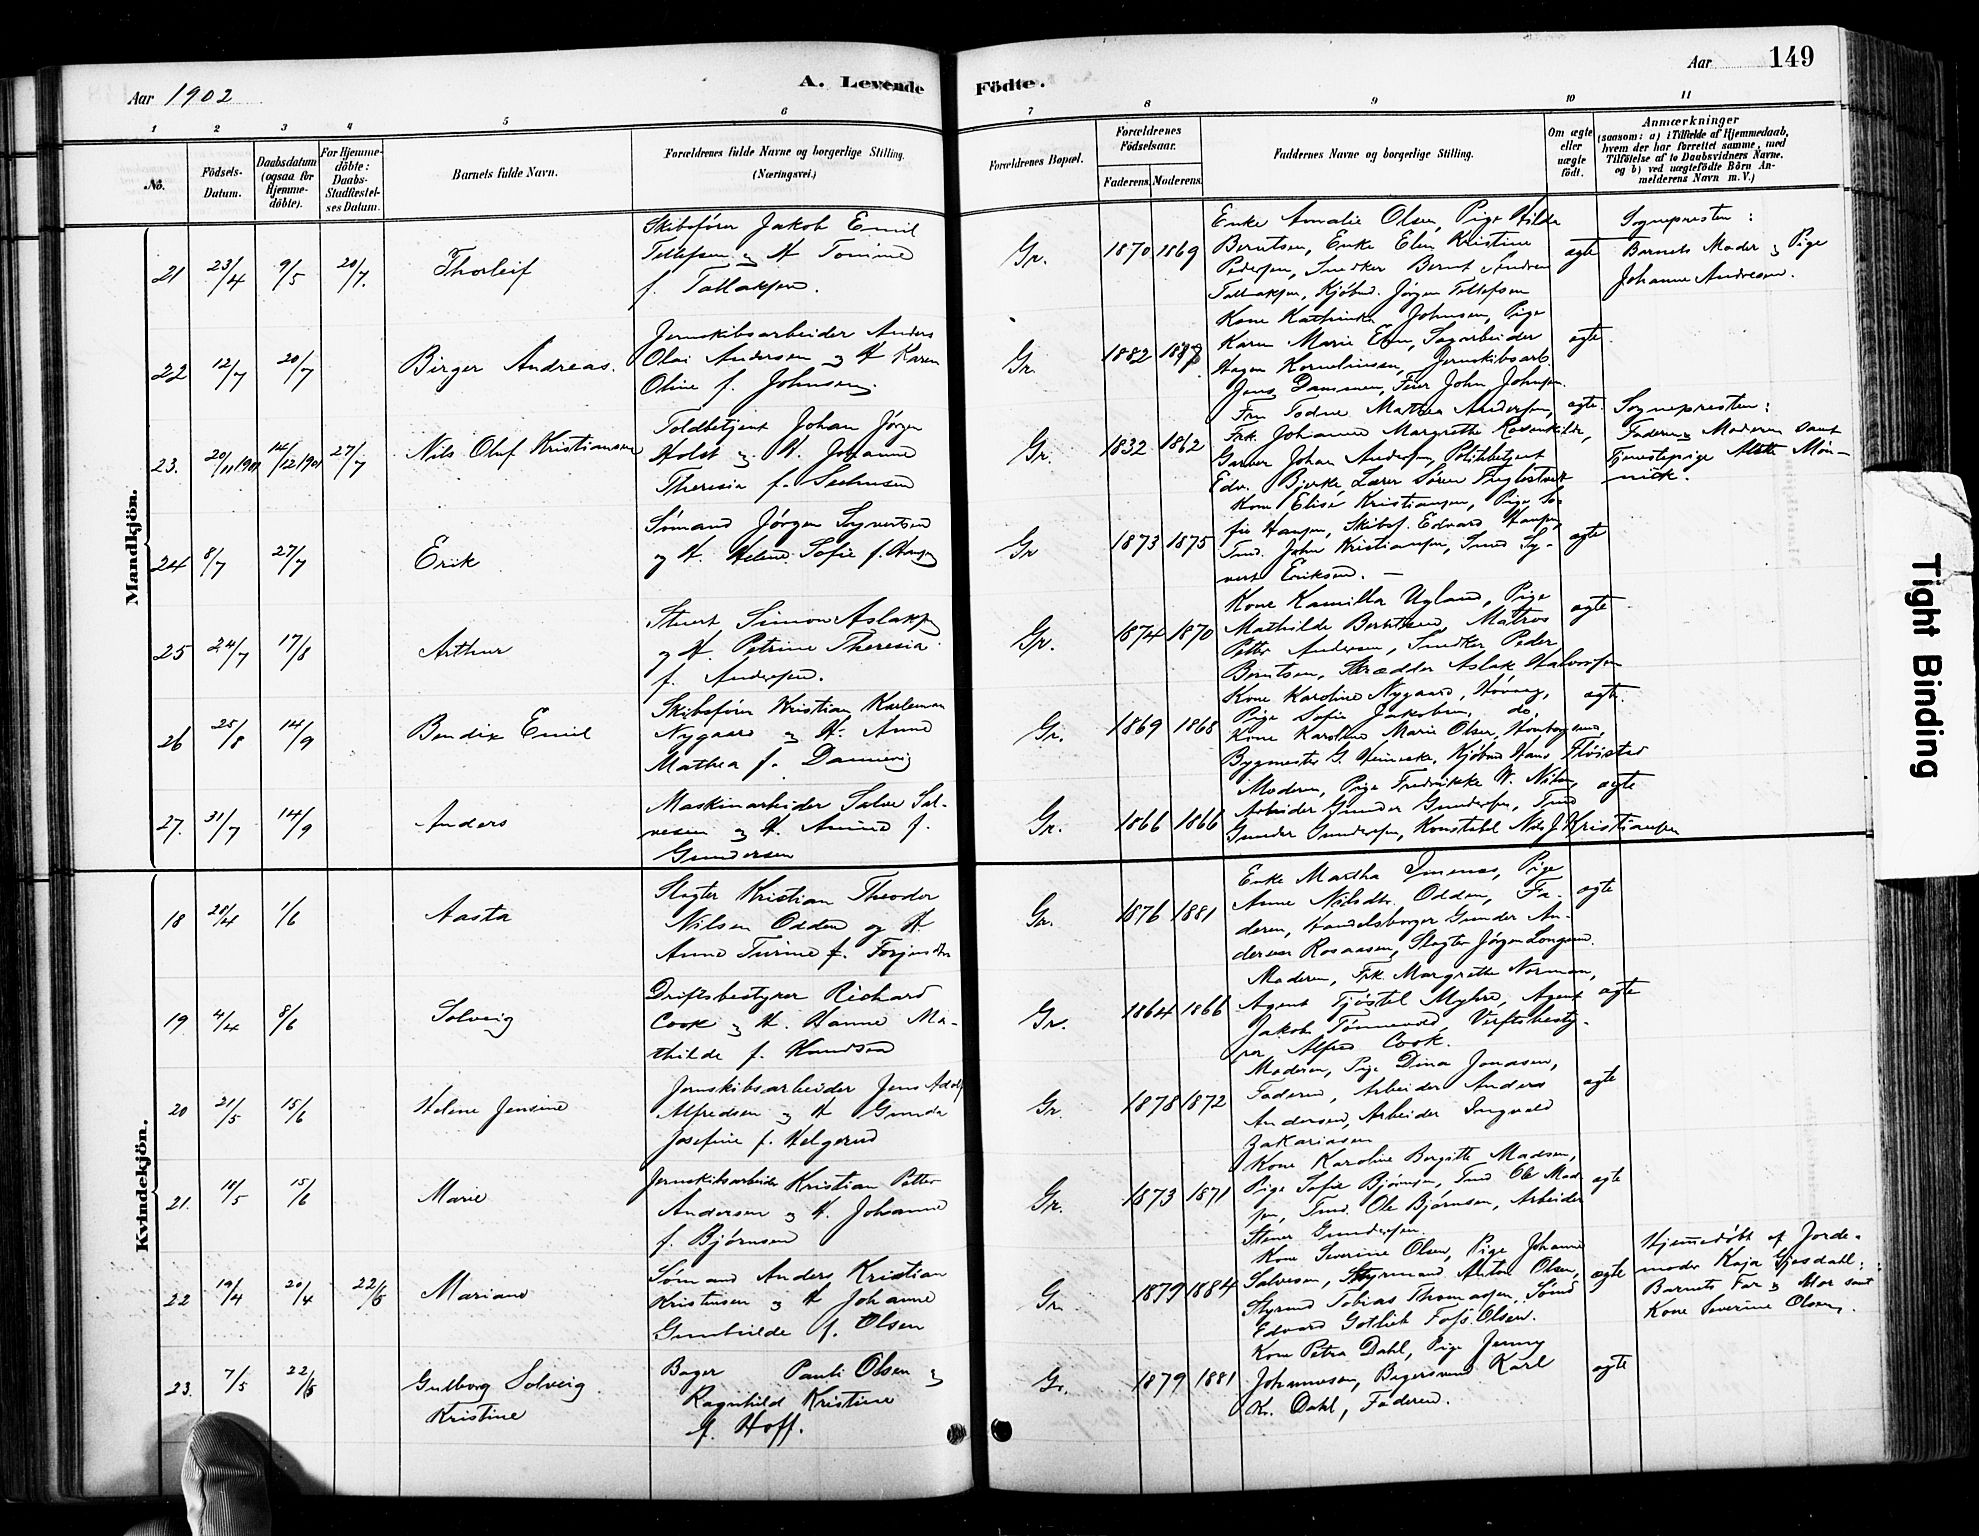 Aar 1902
A. Levende
Födte.
Aar
149
1 2 3 4 5 6 7 8 9 10 11
No.
Födsels-
Datum.
Daabsdatum
(ogsaa for
Hjemme-
döbte).
For Hjemme-
döbte:
Daabs-
Stadfæstel-
ses Datum.
Barnets fulde Navn.
Forældrenes fulde Navne og borgerlige Stilling.
(Næringsvei.)
Forældrenes Bopæl.
Forældrenes
Födselsaar.
Faderens. Moderens.
Faddernes Navne og borgerlige Stilling.
Om ægte
eller
uægte
födt.
Anmærkninger
(saasom: a) i Tilfælde af Hjemmedaab,
hvem der har forrettet samme, med
Tilföielse af to Daabsvidners Navne,
og b) ved uægtefödte Börn An-
melderens Navn m. V.)
Mandkjön.
21 23/4 9/5 20/7. Thorleif
Skibsfører Jakob Emil
Tellefsen og H. Tomine
f. Tallaksen.
Gr. 1870 1869
Enke Amalie Olsen, Pige Hilda
Berntsen, Enke Elen Kristine
Pedersen, Snedker Bernt Andreas
Tallaksen, Kjøbmd. Jørgen Tellefsen
ægte
Sognepresten:
Barnets Moder og Pige
Johanne Andresen.
22 12/7 20/7 Birger Andreas.
Jernskibsarbeider Anders
Olai Andersen og H. Karen
Oline f. Johnsen.
Gr. 1882
Kone Kathinka Johnsen, Pige
Karen Marie Elen, Sagarbeider
Hagen Korneliussen, Jernskibsarb.
Jens Dammen, Feier John Johnsen.
ægte.
23. 20/11 1901 14/12 1901 27/7 Nils Oluf Kristiansen
Toldbetjent Johan Jørgen
Holst og H. Johanne
Theresia f. Seehusen
Gr. 1832 1862
Fru Todne Mathea Andersen,
Frk. Johanne Margrethe Rosenkilde,
Garver Johan Andersen, Politibetjent
Edv. Bjerke Lærer Søren Fuglestvedt
ægte.
Sognepresten:
Faderen og Moderen samt
Tjenestepige Alette Møn-
nick.
24 8/7 27/7 Erik
Sømand Jørgen Syvertsen
og H. Helene Sofie f. Hansen
Gr 1873 1875
Kone Elise Kristiansen, Pige So-
fie Hansen, Skibsf. Edvard Hansen,
Tmd. John Kristiansen, Smed Sy-
vert Eriksen. —
ægte
25 24/7 17/8 Arthur
Stuert Simon Aslaksen
og H. Petrine Theresia
f. Andersen.
Gr. 1874 1870
Kone Kamilla Ugland, Pige
Mathilde Berntsen, Matros
Petter Andersen, Snedker Peder
Berntsen, Skrædder Aslak Halvorsen
ægte
26 25/8 14/9 Bendix Emil
Skibsfører Kristian Karleman
Nygaard og H. Anne
Mathea f. Dannevig
Gr. 1869 1868
Kone Karoline Nygaard, Høvaag,
Pige Sofie Jakobsen, do,
Kone Karoline Marie Olsen,
Bygmester G. Heinecke, Kjøbmd Hans Fløistad
ægte.
27. 31/7 14/9 Anders
Maskinarbeider Salve Sal-
vesen og H. Amine f.
Gundersen
Gr. 1866 1866
Moderen, Pige Fredrikke W. Nilsen,
Arbeider Gunder Gundersen, Tmd
Gunder Gundersen, Konstabel Nils J. Kristiansen
ægte
Kvindekjön.
18 20/4 1/6 Aasta
Slagter Kristian Theodor
Nilsen Odden og H.
Anne Turine f.
Gr. 1876 1881
Enke Martha Imenes, Pige
Anne Nilsdtr. Odden, Fa-
deren, Handelsborger Gunder An-
dersen Rosaasen, Slagter Jørgen Longum.
ægte
19. 4/4 8/6 Solveig
Driftsbestyrer Richard
Cook og H. Hanne Ma-
thilde f. Knudsen
Gr. 1864 1866
Moderen, Frk. Margrethe Norman,
Agent Tjøstel Myhre, Agent
Jakob Tønnevold, Verftsbesty-
rer Alfred Cook.
ægte
20 21/5 15/6 Helene Jensine
Jernskibsarbeider Jens Adolf
Alfredsen og H Gunda
Josefine f. Helgerud
Gr. 1878 1872
Moderen, Pige Dina Jonassen,
Faderen, Arbeider Anders
Andersen, Arbeider Ingvald
Zakariasen
ægte
21. 10/5 15/6 Marie
Jernskibsarbeider Kristian Petter
Andersen og H. Johanne
f. Bjørnsen
Gr. 1873 1871
Kone Karoline Bergitte Madsen,
Pige Sofie Bjørnsen, Tmd Ole Mad-
sen, Tmd. Ole Bjørnsen, Arbeider
Stener Gundersen.
ægte
22 19/4 20/4 22/6 Mariane
Sømand Anders Kristian
Kristensen og H Johanne
Gunhilde f. Olsen
Gr. 1879 1884
Kone Severine Olsen, Pige Johanne
Salvesen, Styrmand Anton Olsen,
Styrmd Tobias Thomassen, Sømd
Edvard Gotlieb Olsen.
ægte
Hjemmedøbt af Jorde-
moder Kaja Gjesdahl:
Barnets Far og Mor samt
Kone Severine Olsen.
23. 7/5 22/6 Gudborg Solveig
Kristine
Bager Pauli Olsen og
Ragnhild Kristine
f. Hoff.
Gr. 1879 1881
Kone Petra Dahl, Pige Jenny
Johannesen, Bagersvend Karl
Kr. Dahl, Faderen.
ægte
Tight Binding